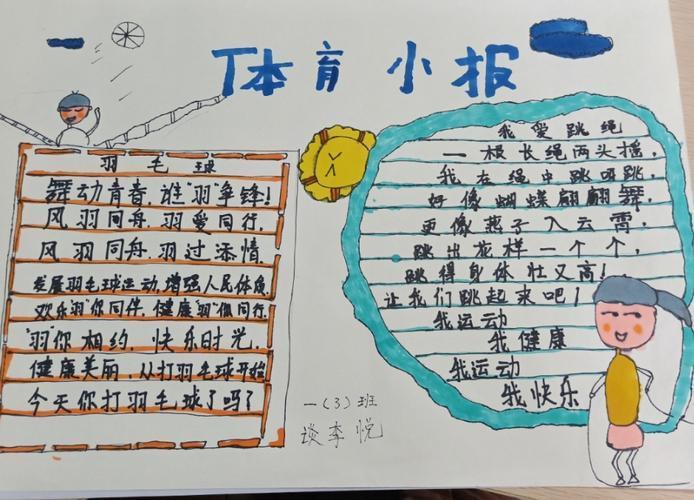 体育小报
羽毛球
舞动青春,谁"羽"争锋!
风羽同舟,羽爱同行,
风羽同舟,羽过添情
发展羽毛球运动,增强人民体质
欢乐"羽"你同伴,健康"羽"你同行,
"羽"你相约,快乐时光,
健康美丽,从打羽毛球开始
今天你打羽毛球了吗?
我爱跳绳
一根长绳两头摇,
我在绳中跳呀跳,
好像蝴蝶翩翩舞,
更像燕子入云霄,
跳出花样一个个,
跳得身体壮又高!
让我们跳起来吧!
我运动
我健康
我运动
我快乐
一(3)班
谈李悦